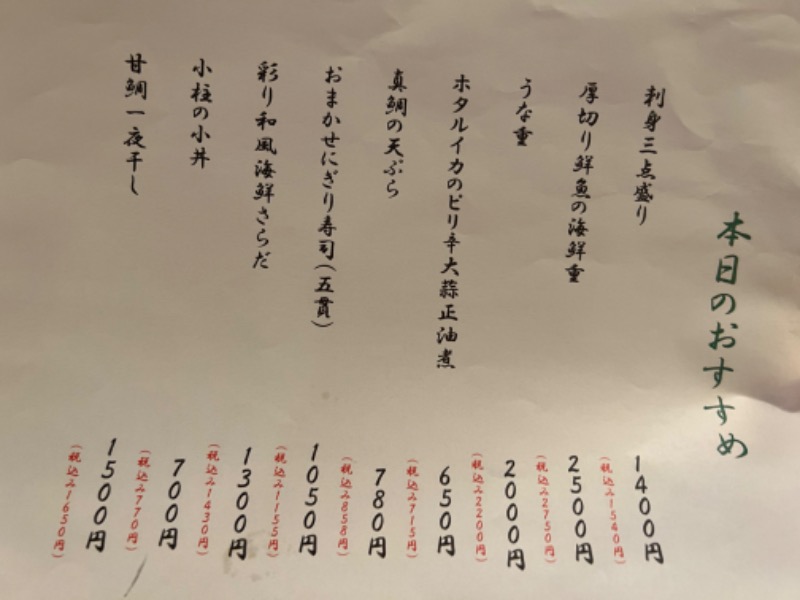 本日のおすすめ
刺身三点盛り 1400円
(税込み1540円)
厚切り鮮魚の海鮮重 2500円
(税込み2750円)
うな重 2000円
(税込み2200円)
ホタルイカのピリ辛大蒜正油煮 650円
(税込み715円)
真鯛の天ぷら 780円
(税込み858円)
おまかせにぎり寿司(五貫) 1050円
(税込み1155円)
彩り和風海鮮さらだ 1300円
(税込み1430円)
小柱の小丼 700円
(税込み770円)
甘鯛一夜干し 1500円
(税込み1650円)